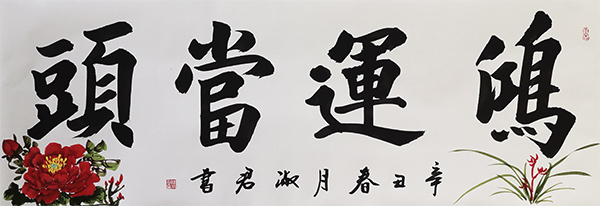 鴻運當頭
辛丑春月淑君書